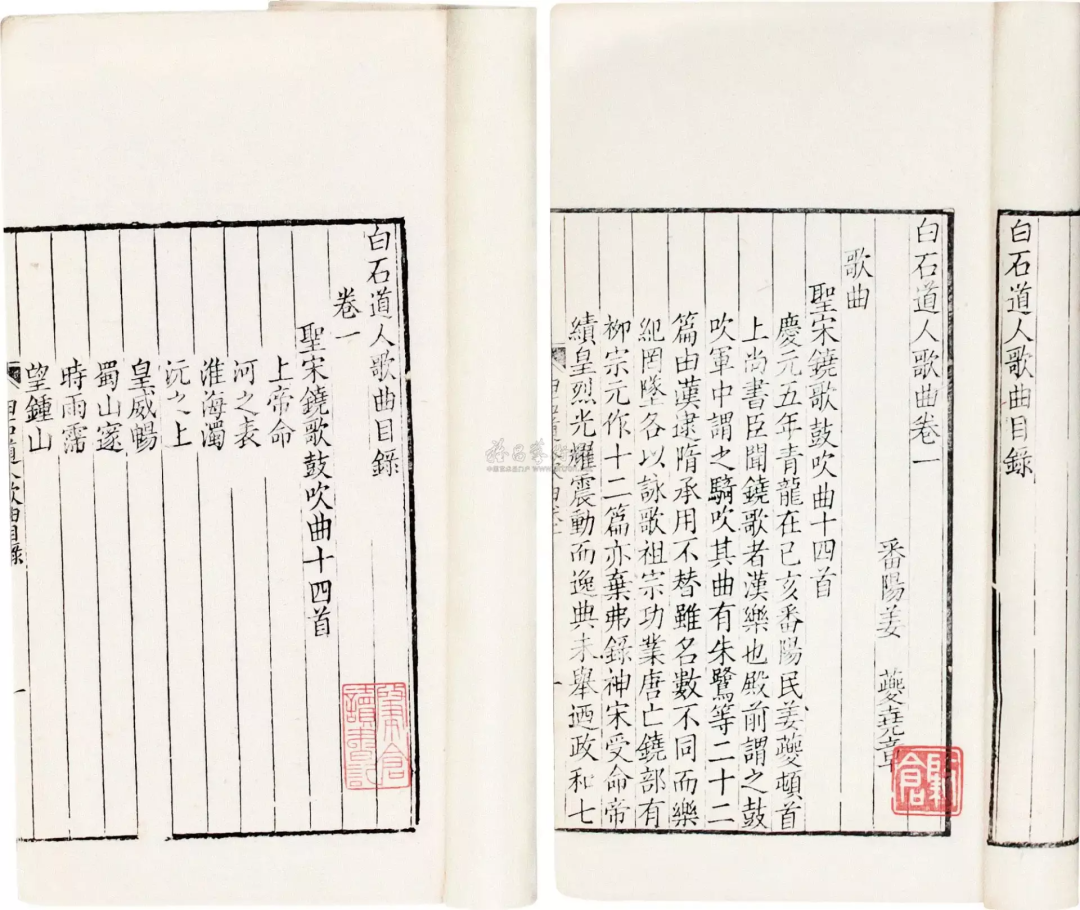 白石道人歌曲目錄
卷一
聖宋鐃歌鼓吹曲十四首
上帝命
河之表
淮海濁
沅之上
皇威暢
蜀山邃
時雨霈
望鍾山
白石道人歌曲目錄
一
白石道人歌曲目錄
白石道人歌曲卷一
番陽姜 夔堯章
歌曲
聖宋鐃歌鼓吹曲十四首
慶元五年青龍在己亥番陽民姜夔頓首
上尚書臣聞鐃歌者漢樂也殿前謂之鼓
吹軍中謂之騎吹其曲有朱鷺等二十二
篇由漢逮隋承用不替雖名數不同而樂
紀罔隊各以詠歌祖宗功業唐亡鐃部有
柳宗元作十二篇亦棄弗錄神宋受命帝
績皇烈光耀震動而逸典未舉迺政和七